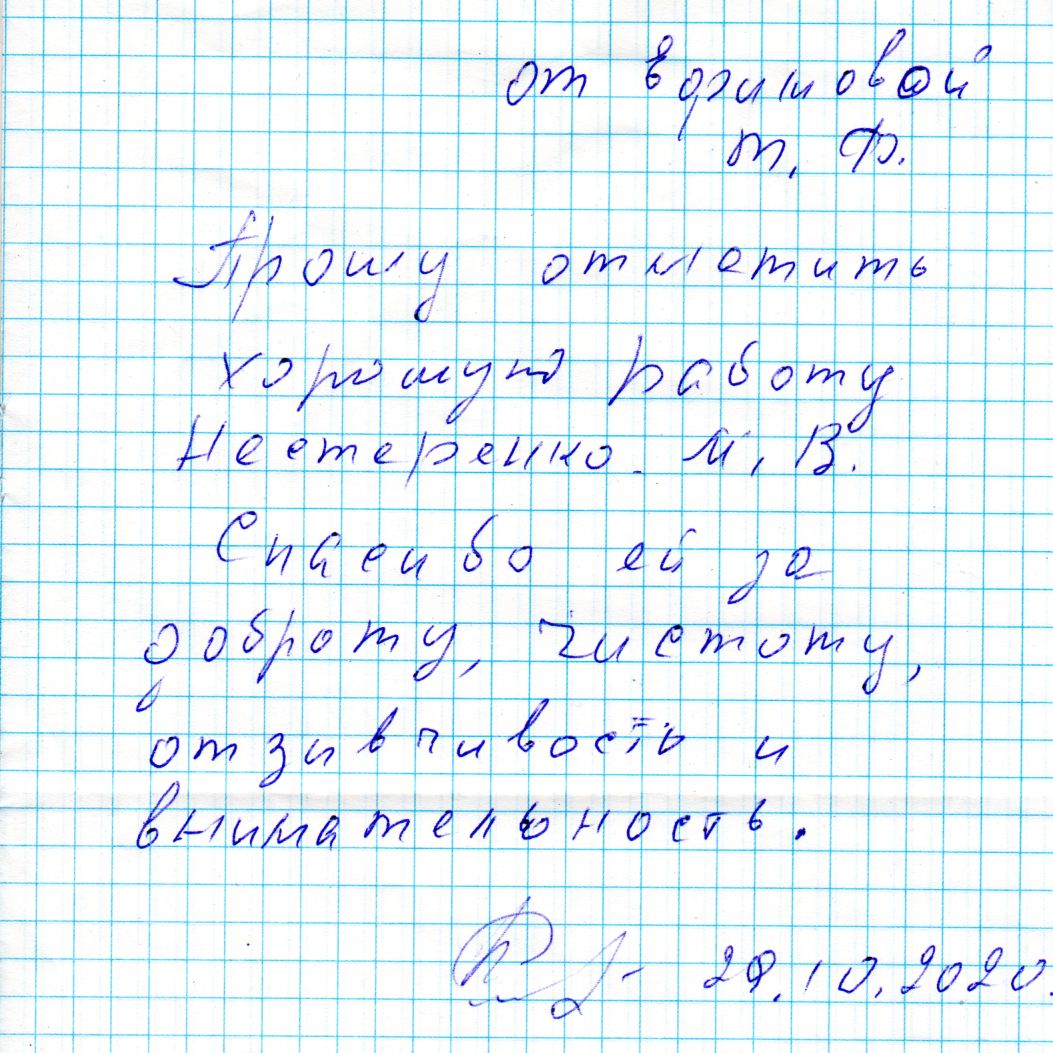 от
т. Ф.
Прошу отметить
хорошую работу
Нестеренко. М. В.
Спасибо ей за
доброту, чистоту,
отзывчивость и
внимательность.
29.10.2020.